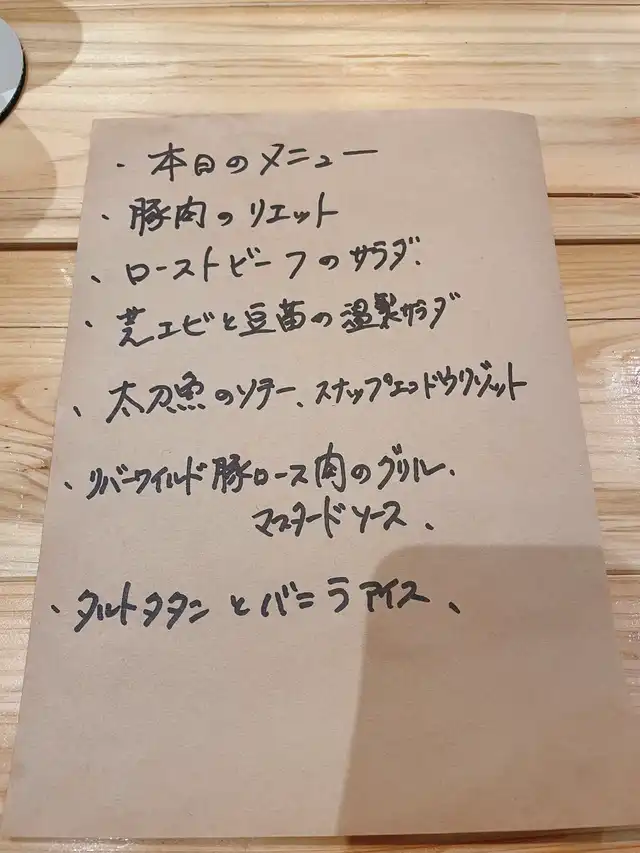 ・本日のメニュー
・豚肉のリエット
、ローストビーフのサラダ.
・芝エビと豆苗の温製サラダ
、太刀魚のソテー、スナップエンドウリゾット
・リバーワイルド豚ロース肉のグリル.
マスタードソース、
・タルトタタンとバニラアイス、